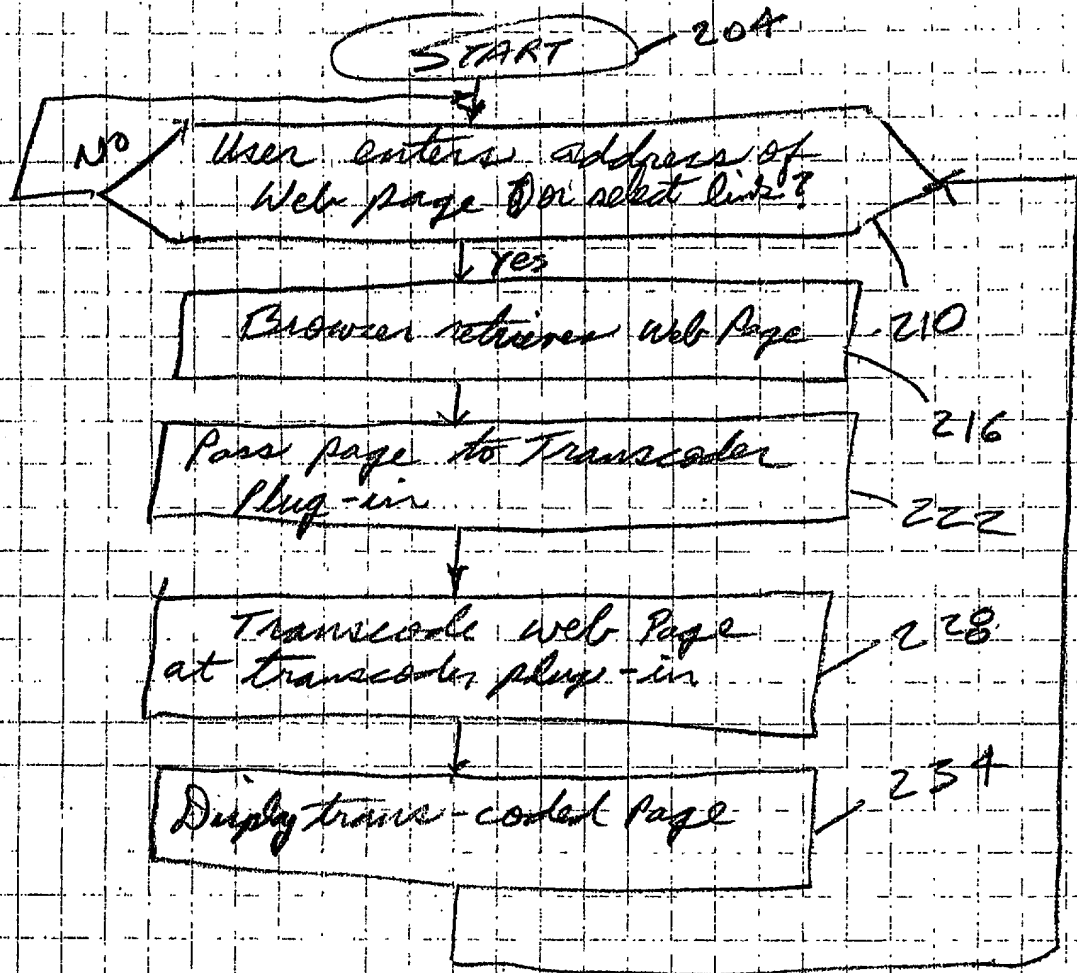 START
204
No
User enters address of
Web page or select link?
Yes
210
Browser retrieves Web Page
216
Pass page to Transcoder
Plug-in
222
Transcode web Page
at transcoder plug-in
228
Disply trans-coded Page
234